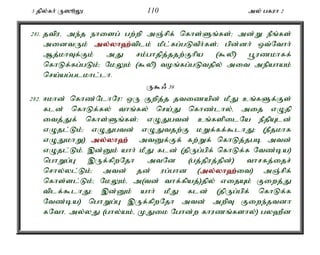 3 தில்கர் ருஸூலு 110 அல் பகரா 2
281. தவிர, அந்த நாளைப் பற்றி அஞ்சிக் கொள்ளுங்கள்; அன்று நீங்கள்
அனைவரும் அல்லாஹ்விடம் மீட்கப்படுவீர்கள்; பின்னர் ஒவ்வோர்
ஆத்மாவுக்கும் அது சம்பாதித்ததற்குரிய (கூலி) பூரணமாகக்
கொடுக்கப்படும்; மேலும் (கூலி) வழங்கப்படுவதில் அவை அநியாயம்
செய்யப்படமாட்டா.
ருகூஃ 39
282. ஈமான் கொண்டோரே! ஒரு குறித்த தவணையின் மீது உங்களுக்குள்
கடன் கொடுக்கல் வாங்கல் செய்து கொண்டால், அதை எழுதி
வைத்துக் கொள்ளுங்கள்; எழுதுபவன் உங்களிடையே நீதியுடன்
எழுதட்டும்; எழுதுபவன் எழுதுவதற்கு மறுக்கக்கூடாது; (நீதமாக
எழுதுமாறு) அல்லாஹ் அவனுக்குக் கற்றுக் கொடுத்தபடி அவன்
எழுதட்டும். இன்னும் யார் மீது கடன் (திருப்பிக் கொடுக்க வேண்டிய)
பொறுப்பு இருக்கிறதோ அவனே (பத்திரத்தின்) வாசகத்தைச்
சொல்லட்டும்; அவன் தன் ரப்பான (அல்லாஹ்வை) அஞ்சிக்
கொள்ளட்டும்; மேலும், அ(வன் வாக்கியத்)தில் எதையும் குறைத்து
விடக்கூடாது; இன்னும் யார் மீது கடன் (திருப்பிக் கொடுக்க
வேண்டிய) பொறுப்பு இருக்கிறதோ அவன் அறிவு குறைந்தவனா
கவோ, அல்லது (பால்யம், முதுமை போன்ற காரணங்களால்) பலஹீன